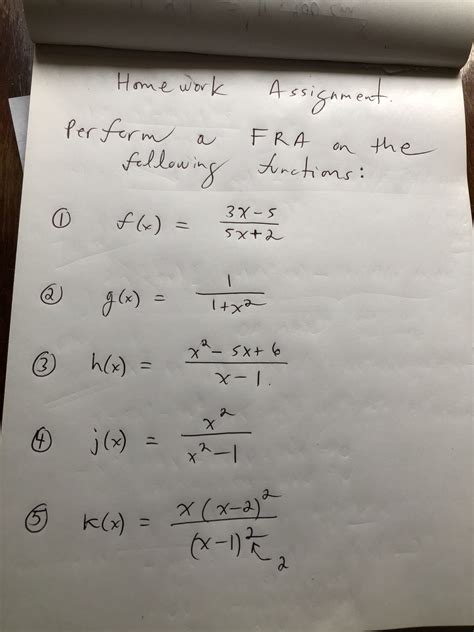 Homework Assignment.
Perform a FRA on the
following functions:
① f(x) = (3x-5)/(5x+2)
② g(x) = 1/(1+x²)
③ h(x) = (x²-5x+6)/(x-1).
④ j(x) = x²/(x²-1)
⑤ k(x) = x(x-2)²/(x-1)²
2